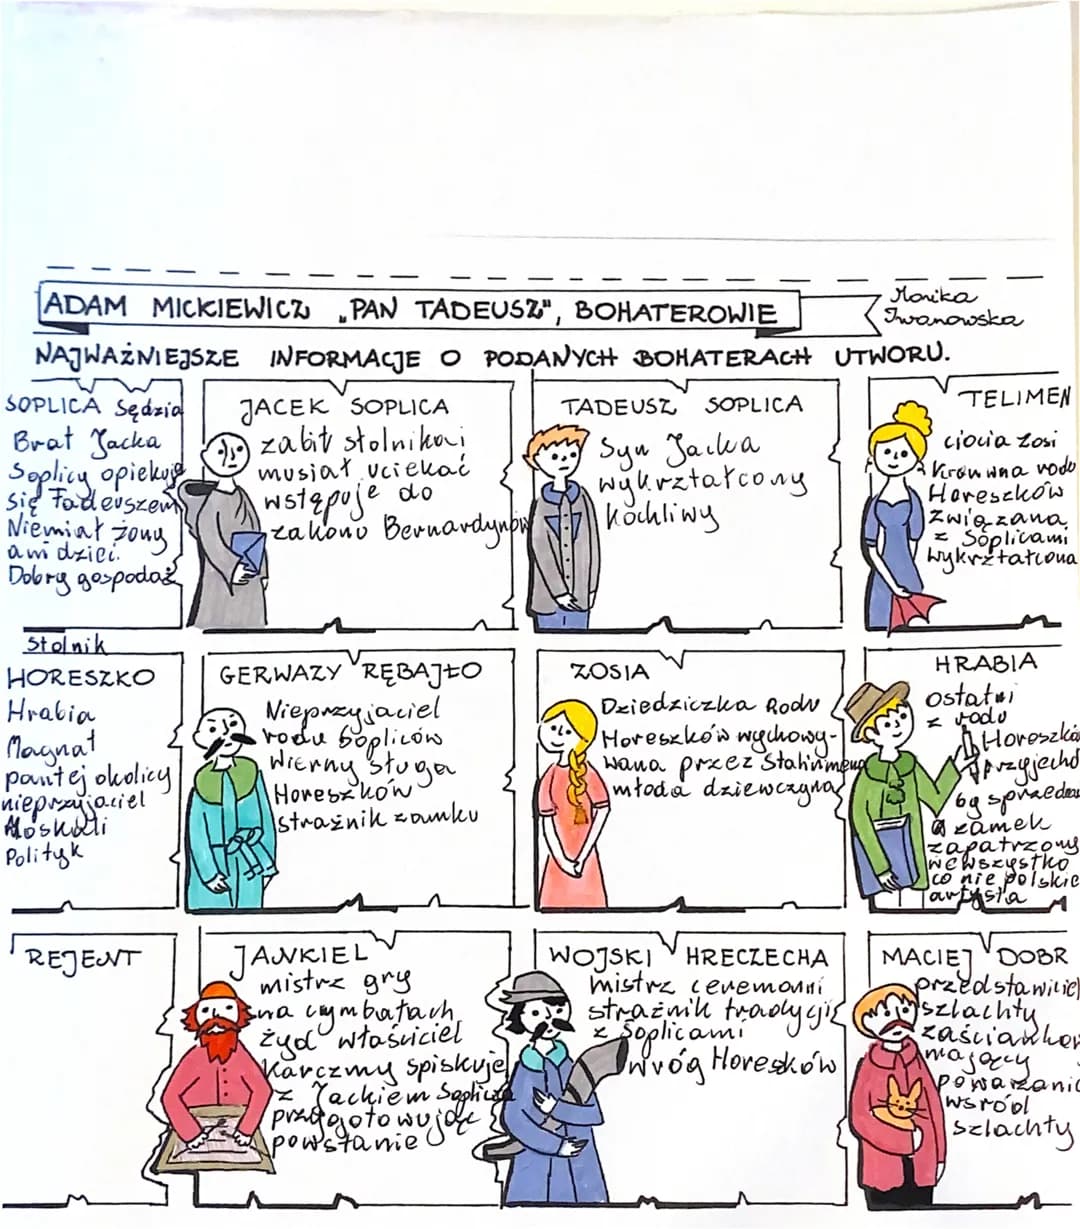 ADAM MICKIEWICZ „PAN TADEUSZ", BOHATEROWIE
Monika
Iwanowska
NAJWAŻNIEJSZE INFORMACJE O PODANYCH BOHATERACH UTWORU.
SOPLICA Sędzia
Brat Jacka
Soplicy opiekuje
się Tadeuszem
Niemiał żony
ani dzieci.
Dobry gospodaż
JACEK SOPLICA
zabił stolnika i
musiał uciekać
wstępuje do
zakonu Bernardynów
TADEUSZ SOPLICA
Syn Jacka
wykrztałcony
Kochliwy
TELIMEN
ciocia Zosi
Krewwna rodu
Horeszków
Związana
z Soplicami
wykrztałcona
Stolnik
HORESZKO
Hrabia
Magnat
pan tej okolicy
nieprzyjaciel
Moskali
Polityk
GERWAZY RĘBAJŁO
Nieprzyjaciel
rodu Sopliców
Wierny sługa
Horeszków
strażnik zamku
ZOSIA
Dziedziczka Rodu
Horeszków wychowy-
wana przez
młoda dziewczyna
HRABIA
ostatni
z rodu
Horeszkó
przyjechd
by sprzeda
zamek
zapatrzony
we wszystko
co nie polskie
artysta
REJENT
JANKIEL
mistrz gry
na cymbałach
żyd właściciel
Karczmy spiskuje
z Jackiem Soplicą
przygotowując
powstanie
WOJSKI HRECZECHA
mistrz ceremonii
strażnik tradycji
z Soplicami
wróg Horeszków
MACIEJ DOBR
przedstawiciel
szlachty
zaściankow
mający
poważanie
wśród
szlachty